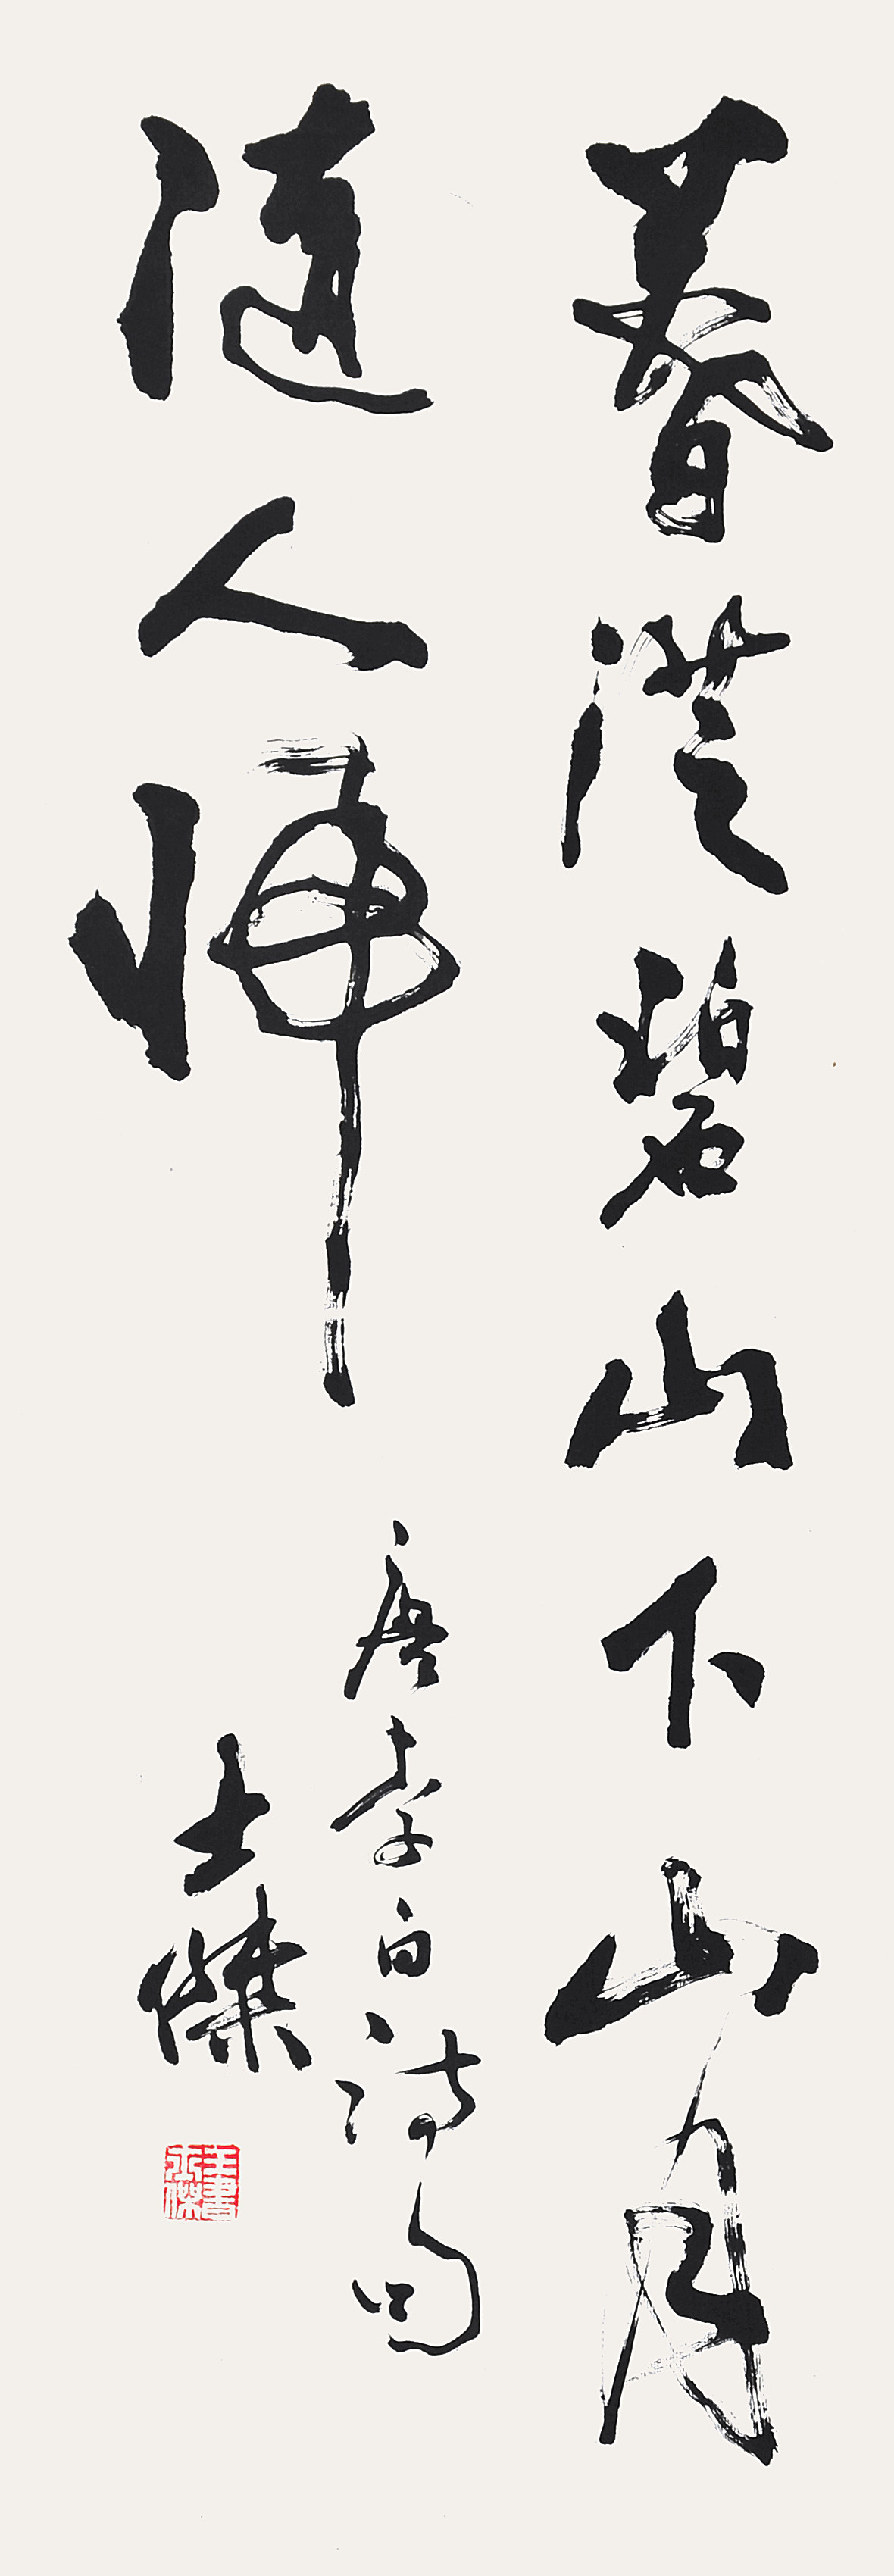 暮從碧山下山月
隨人歸
唐李白詩句
士傑
王士傑書